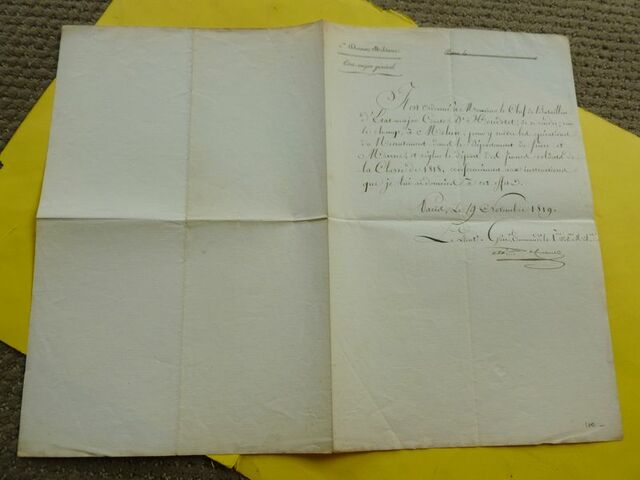 1re Division Militaire.
Etat-major général.
Il est ordonné à Monsieur le Chef de Bataillon
d'Etat-major Comte d'Houdetot, de se rendre, sur
le champ, à Melun, pour y suivre les opérations
du Recrutement dans le département de Seine et
Marne, et régler le départ des jeunes soldats de
la Classe de 1818, conformément aux instructions
que je lui ai données à cet effet.
Paris, Le 19 Novembre 1819.
Le Lieut.t Gén.al Commandt la 1re Don Mre